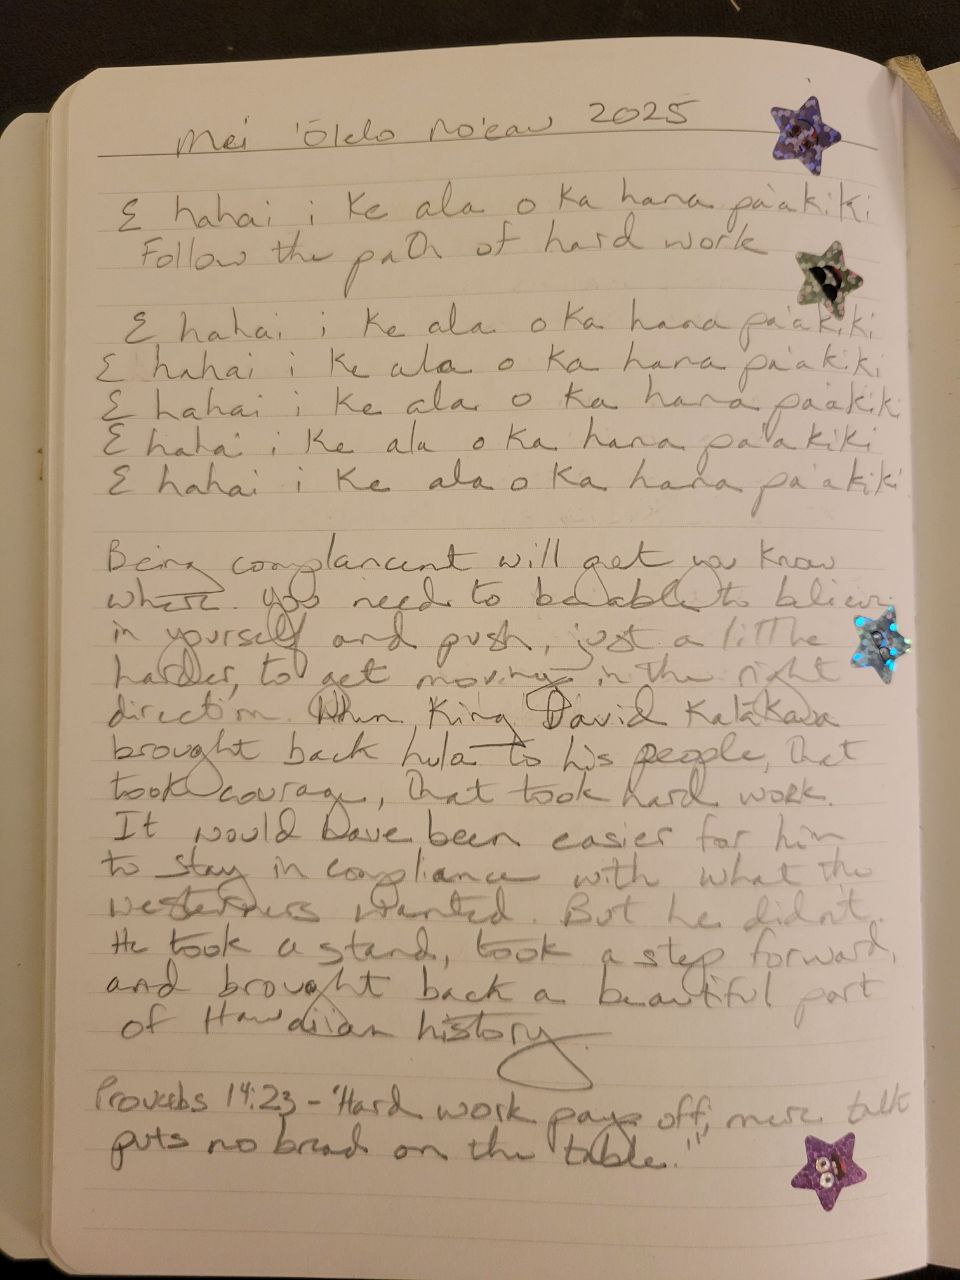 Mei 'Ōlelo No'eau 2025
E hahai i ke ala o ka hana pa'akiki
Follow the path of hard work
E hahai i ke ala o ka hana pa'akiki
E hahai i ke ala o ka hana pa'akiki
E hahai i ke ala o ka hana pa'akiki
E hahai i ke ala o ka hana pa'akiki
E hahai i ke ala o ka hana pa'akiki
Being complancent will get you know
where. you need to be able to believe
in yourself and push, just a little
harder, to get moving in the right
direction. When King David Kalākaua
brought back hula to his people, that
took courage, that took hard work.
It would have been easier for him
to stay in compliance with what the
westerners wanted. But he didn't.
He took a stand, took a step forward,
and brought back a beautiful part
of Hawaiian history.
Proverbs 14:23 - "Hard work pays off; mere talk
puts no bread on the table."